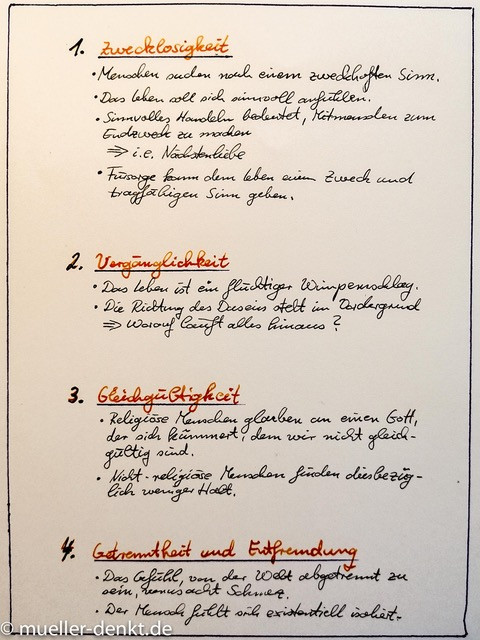 1. Zwecklosigkeit
• Menschen suchen nach einem zweckhaften Sinn.
• Das Leben soll sich sinnvoll anfühlen.
• Sinnvolles Handeln bedeutet, Mitmenschen zum
Endzweck zu machen
⇒ i.e. Nächstenliebe
• Fürsorge kann dem Leben einen Zweck und
tragfähigen Sinn geben.
2. Vergänglichkeit
• Das Leben ist ein flüchtiger Wimpernschlag.
• Die Richtung des Daseins steht im Vordergrund
⇒ Worauf läuft alles hinaus?
3. Gleichgültigkeit
• Religiöse Menschen glauben an einen Gott,
der sich kümmert, dem wir nicht gleich-
gültig sind.
• Nicht-religiöse Menschen finden diesbezüg-
lich weniger Halt.
4. Getrenntheit und Entfremdung
• Das Gefühl, von der Welt abgetrennt zu
sein, verursacht Schmerz.
• Der Mensch fühlt sich existentiell isoliert.
© mueller-denkt.de